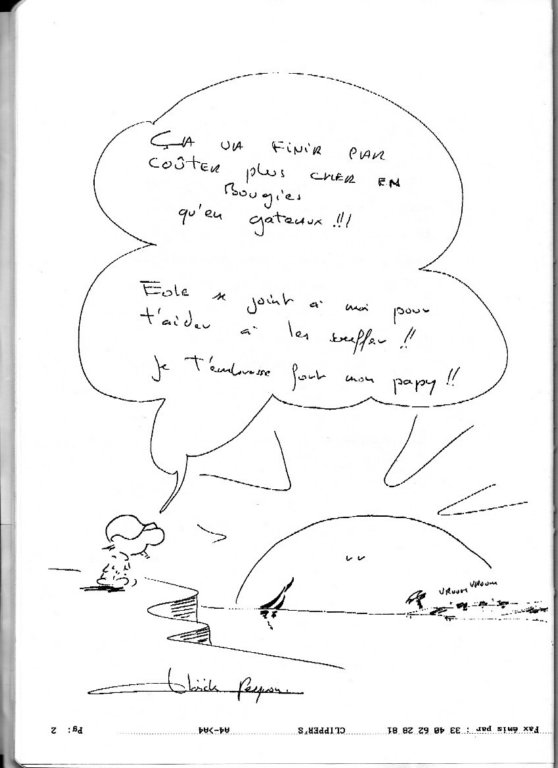 ÇA VA FINIR PAR
COÛTER plus CHER EN
Bougies
qu'en gateaux !!!
Eole se joint à moi pour
t'aider à les souffler !!
Je t'embrasse fort mon papy !!
VROUM VROUM
Fax émis par : 33 40 62 28 81 CLIPPER'S A4->A4 Pg: 2